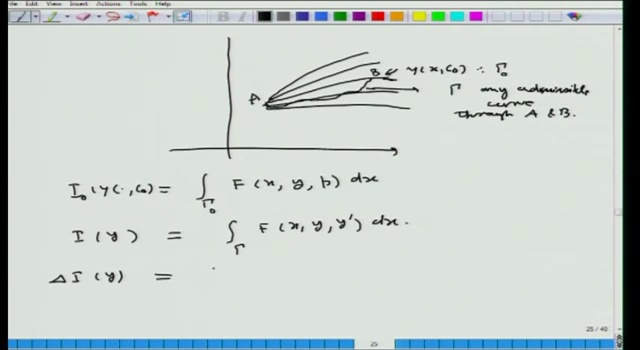 Edit View Insert Actions Tools Help
A
B
y(x, C₀) : Γ₀
Γ any admissible
curve
through A & B.
I₀(y(·, C₀) = ∫_Γ₀ F(x, y, p) dx
I(y) = ∫_Γ F(x, y, y') dx.
ΔI(y) =
25 / 40
25